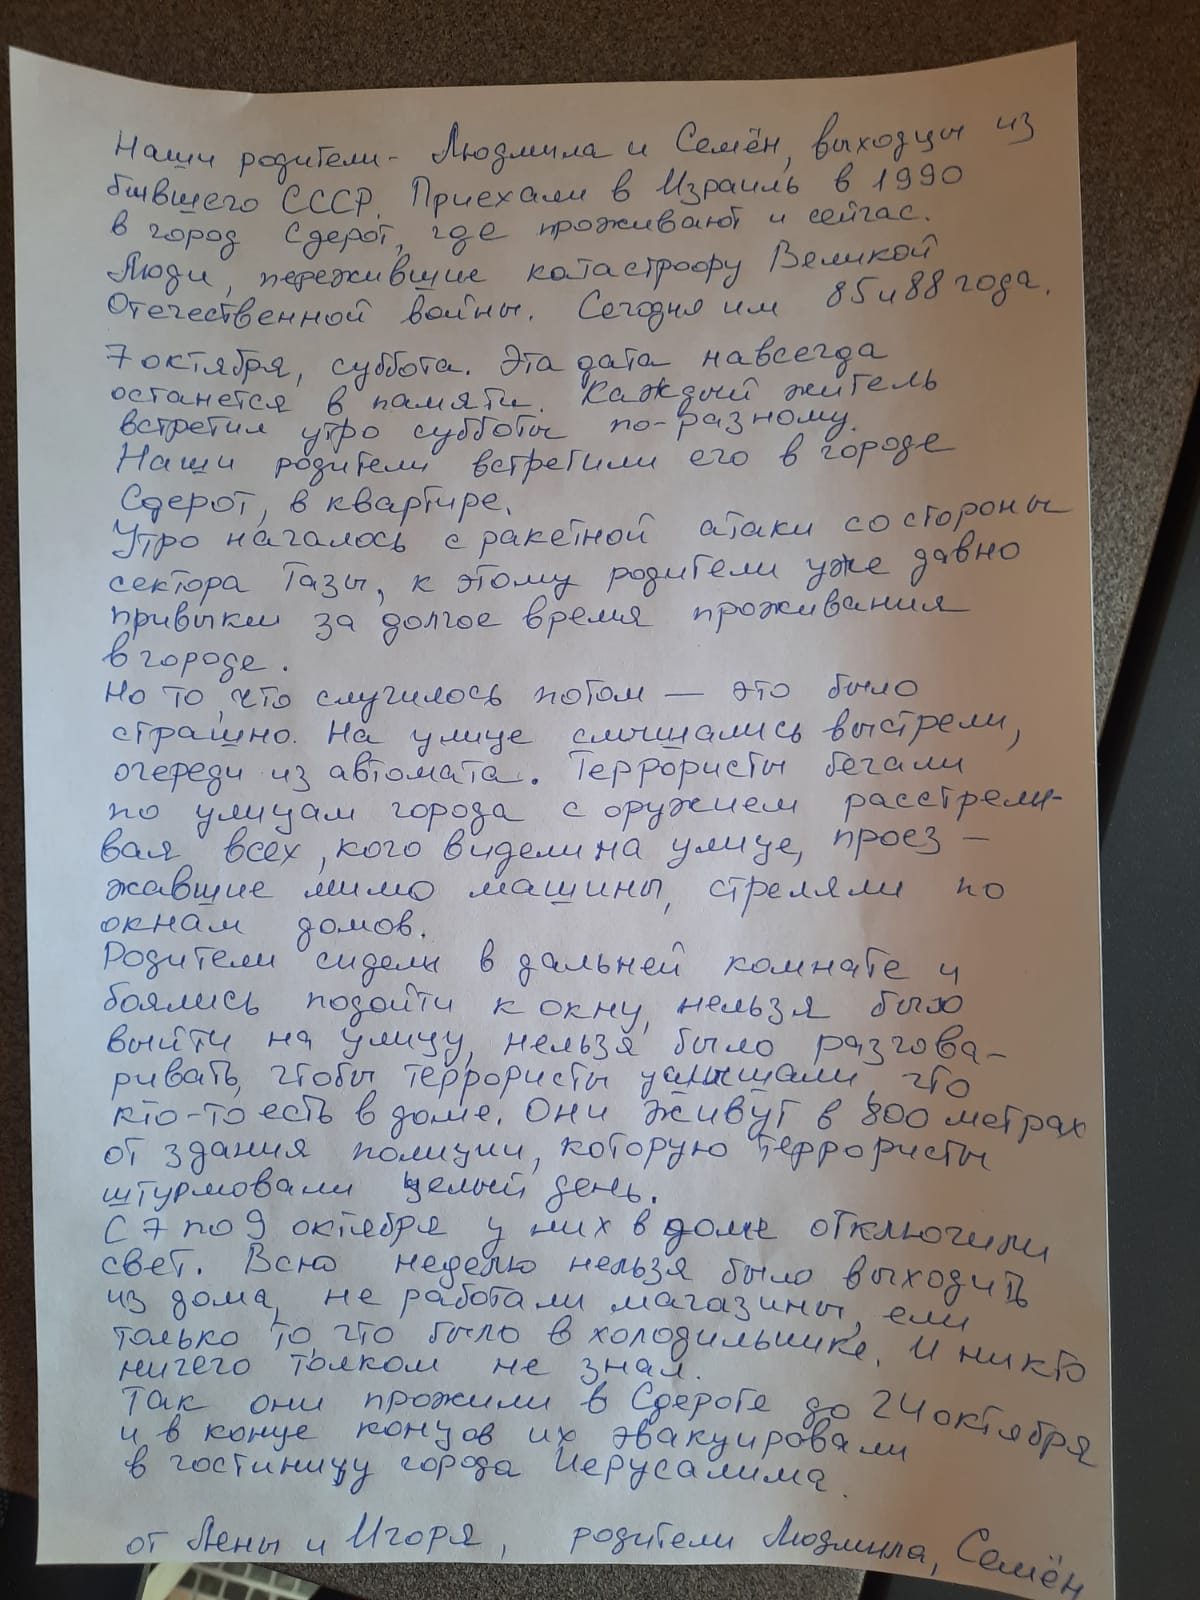 Наши родители - Людмила и Семён, выходцы из
бывшего СССР. Приехали в Израиль в 1990
в город Сдерот, где проживают и сейчас.
Люди, пережившие катастрофу Великой
Отечественной войны. Сегодня им 85 и 88 года.
7 октября, суббота. Эта дата навсегда
останется в памяти. Каждый житель
встретил утро субботы по-разному.
Наши родители встретили его в городе
Сдерот, в квартире.
Утро началось с ракетной атаки со стороны
сектора Газы, к этому родители уже давно
привыкли за долгое время проживания
в городе.
Но то, что случилось потом — это было
страшно. На улице слышались выстрели,
очереди из автомата. Террористы бегали
по улицам города с оружием расстрели-
вая всех, кого видели на улице, проез-
жавшие мимо машины, стреляли по
окнам домов.
Родители сидели в дальней комнате и
боялись подойти к окну, нельзя было
выйти на улицу, нельзя было разгова-
ривать, чтобы террористы услышали, что
кто-то есть в доме. Они живут в 800 метрах
от здания полиции, которую террористы
штурмовали целый день.
С 7 по 9 октября у них в доме отключили
свет. Всю неделю нельзя было выходить
из дома, не работали магазины, ели
только то, что было в холодильнике. И никто
ничего толком не знал.
Так они прожили в Сдероте до 24 октября
и в конце концов их эвакуировали
в гостиницу города Иерусалима.
от Лены и Игоря, родители Людмила, Семён